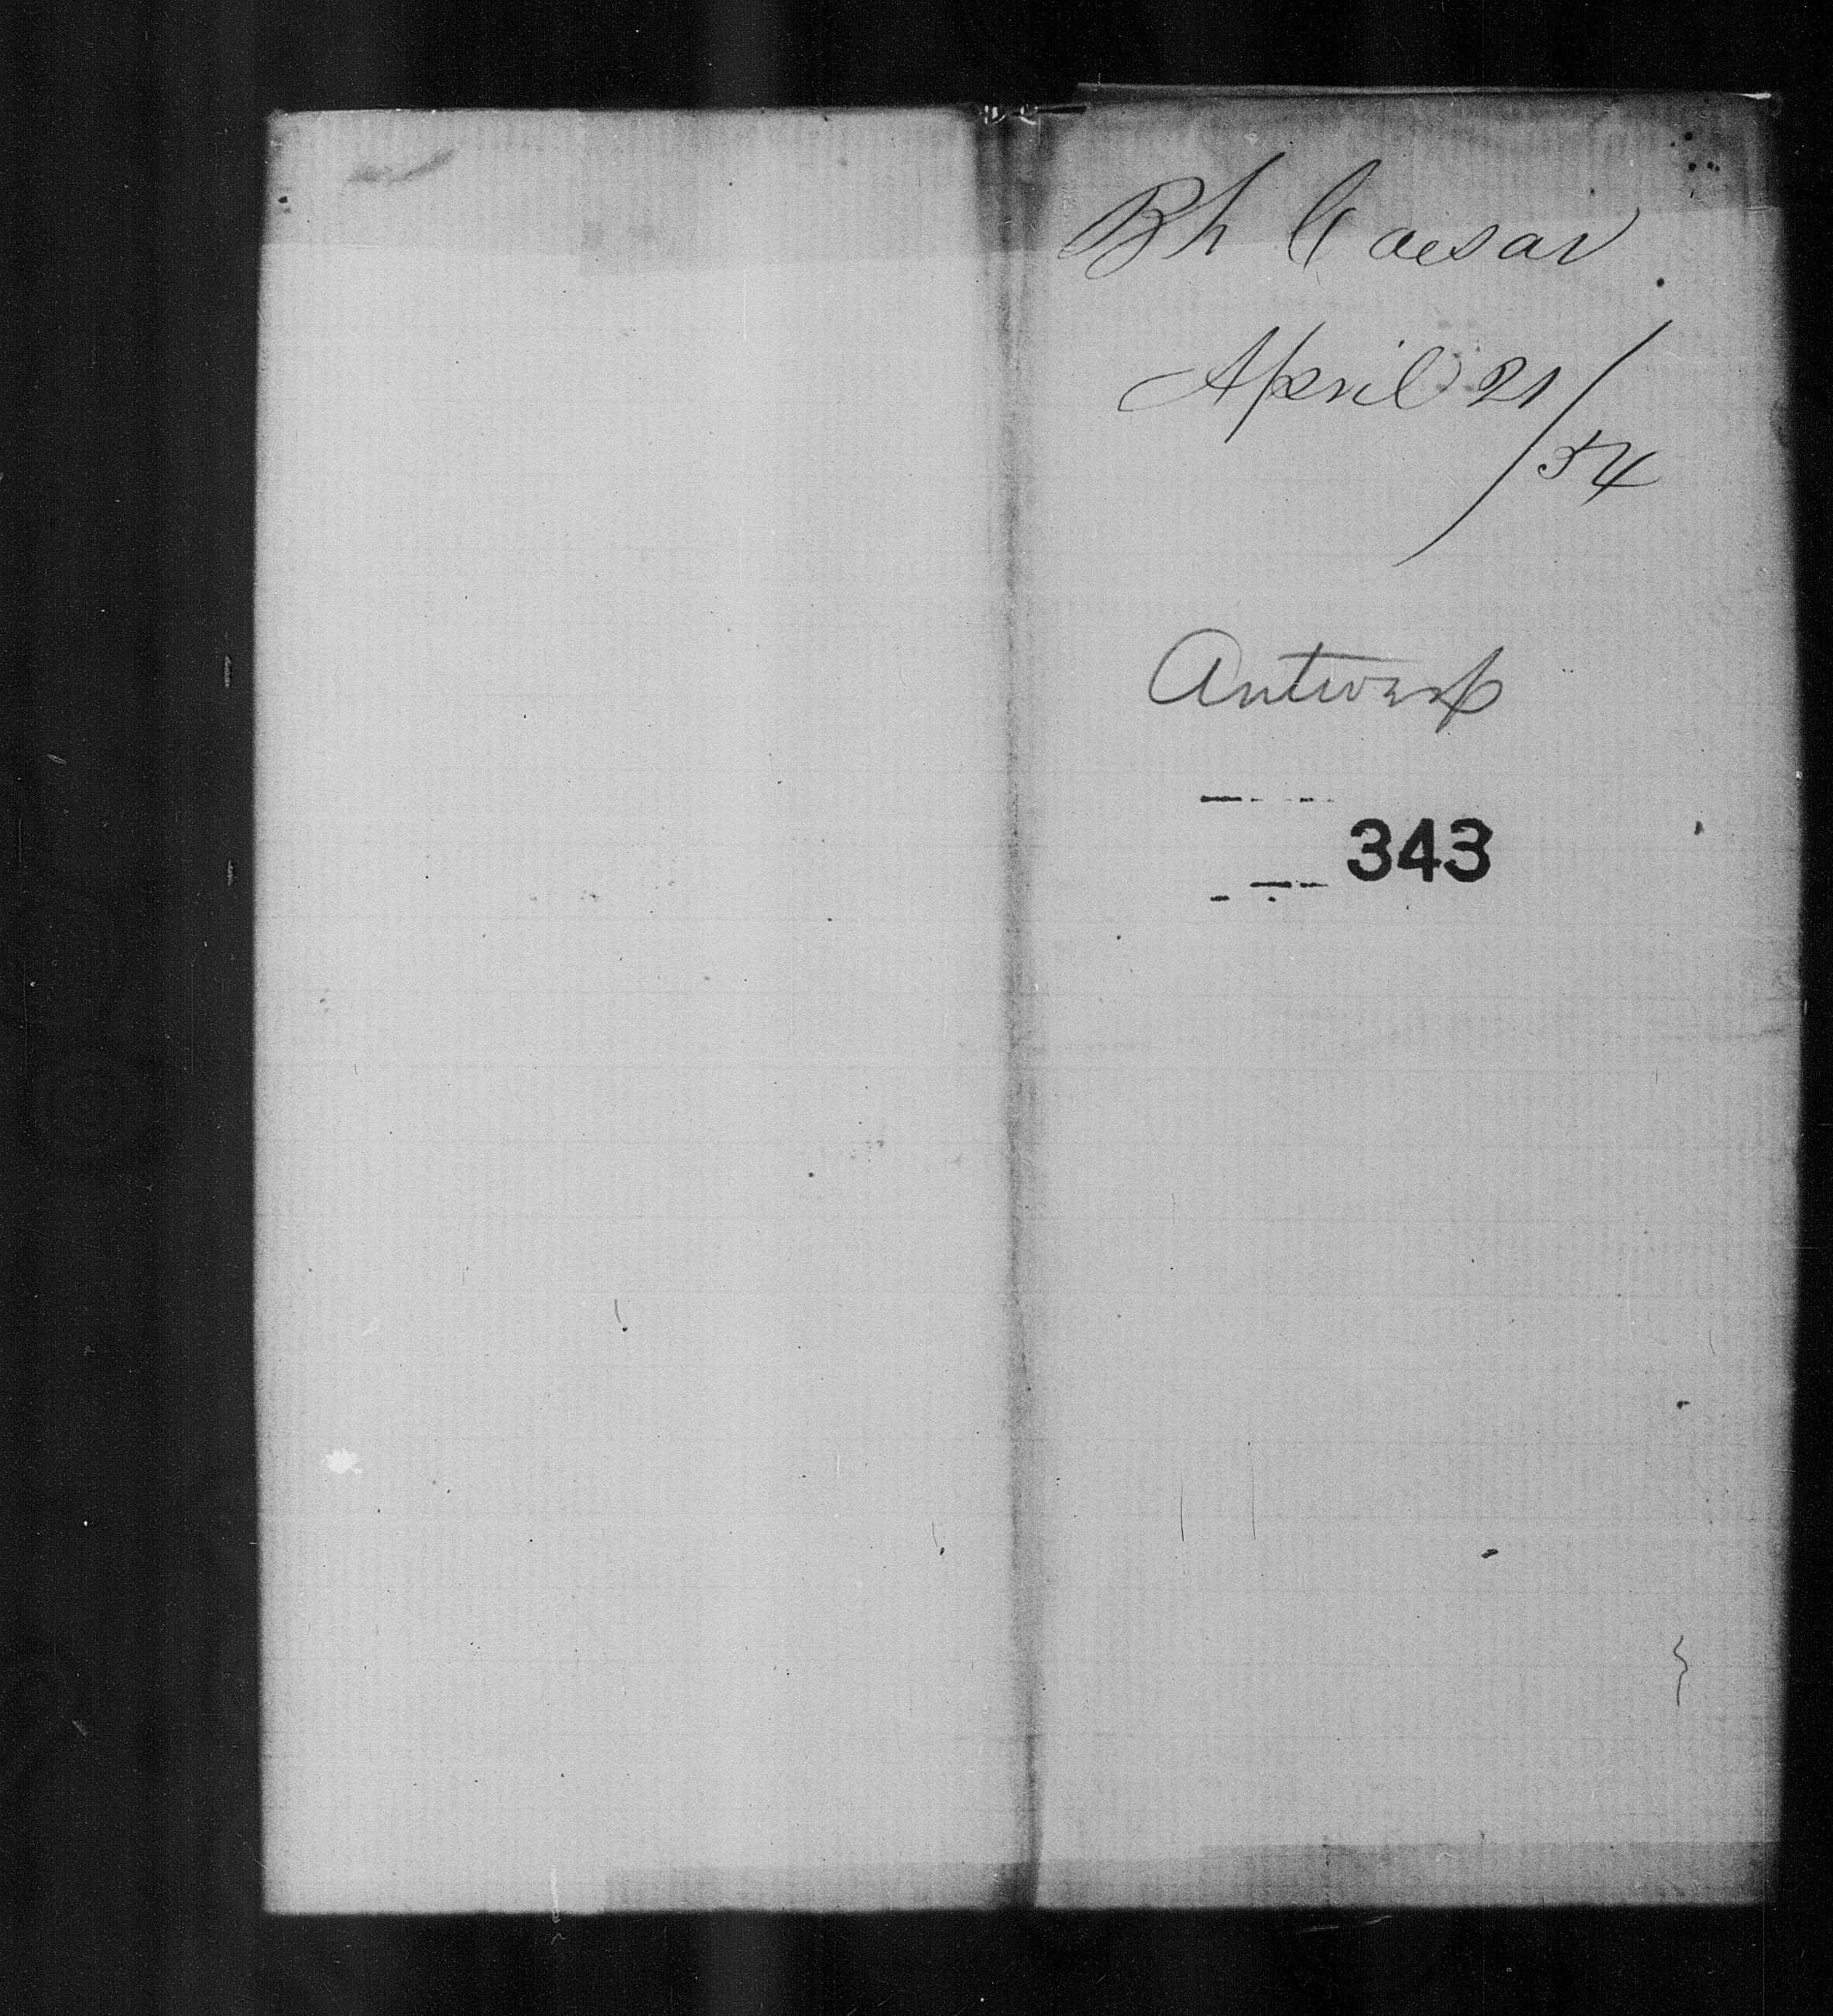 Bk Caesar
April 21/54
Antwerp
343